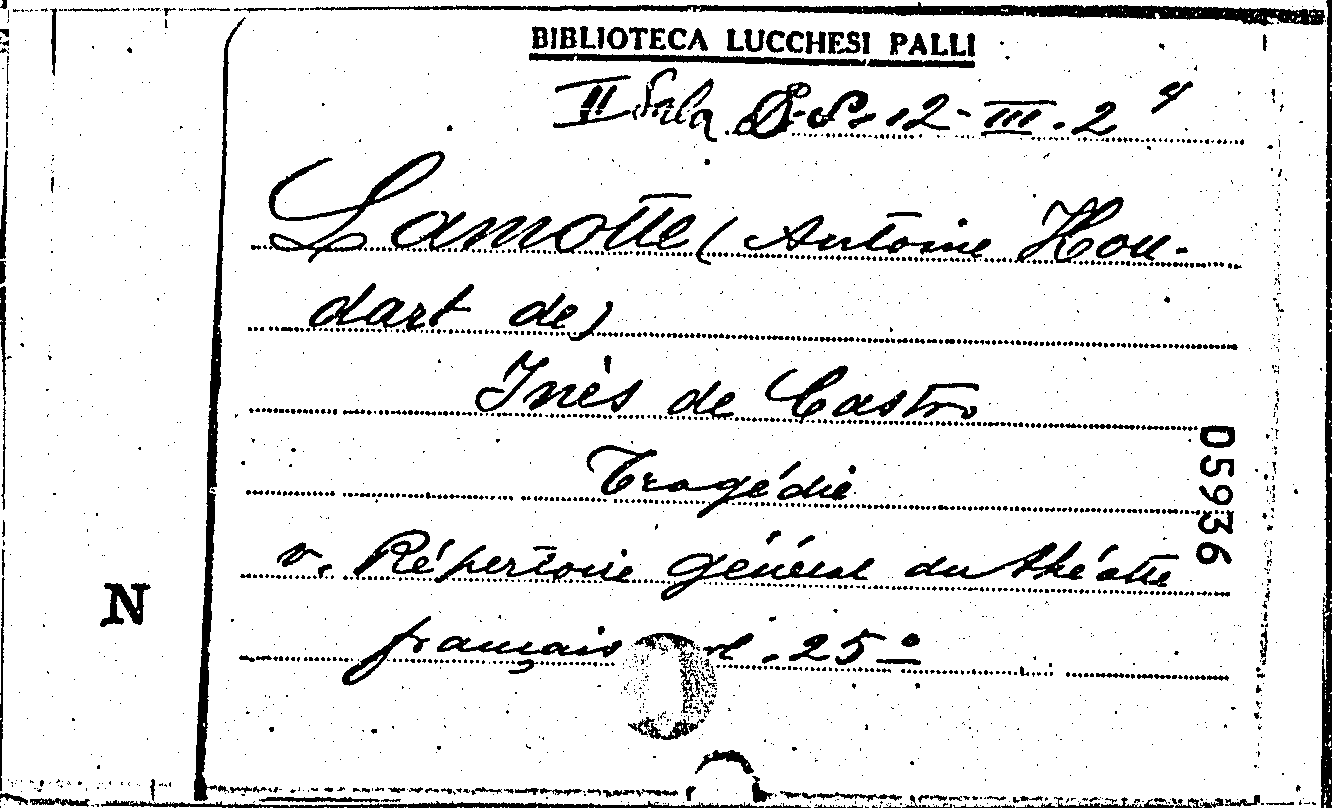 BIBLIOTECA LUCCHESI PALLI
II Sala 12-III.2
Lamotte (Antoine Hou-
dart de)
Inès de Castro
Tragédie
v. Répertoire général du théatre
français 25º
N
05936